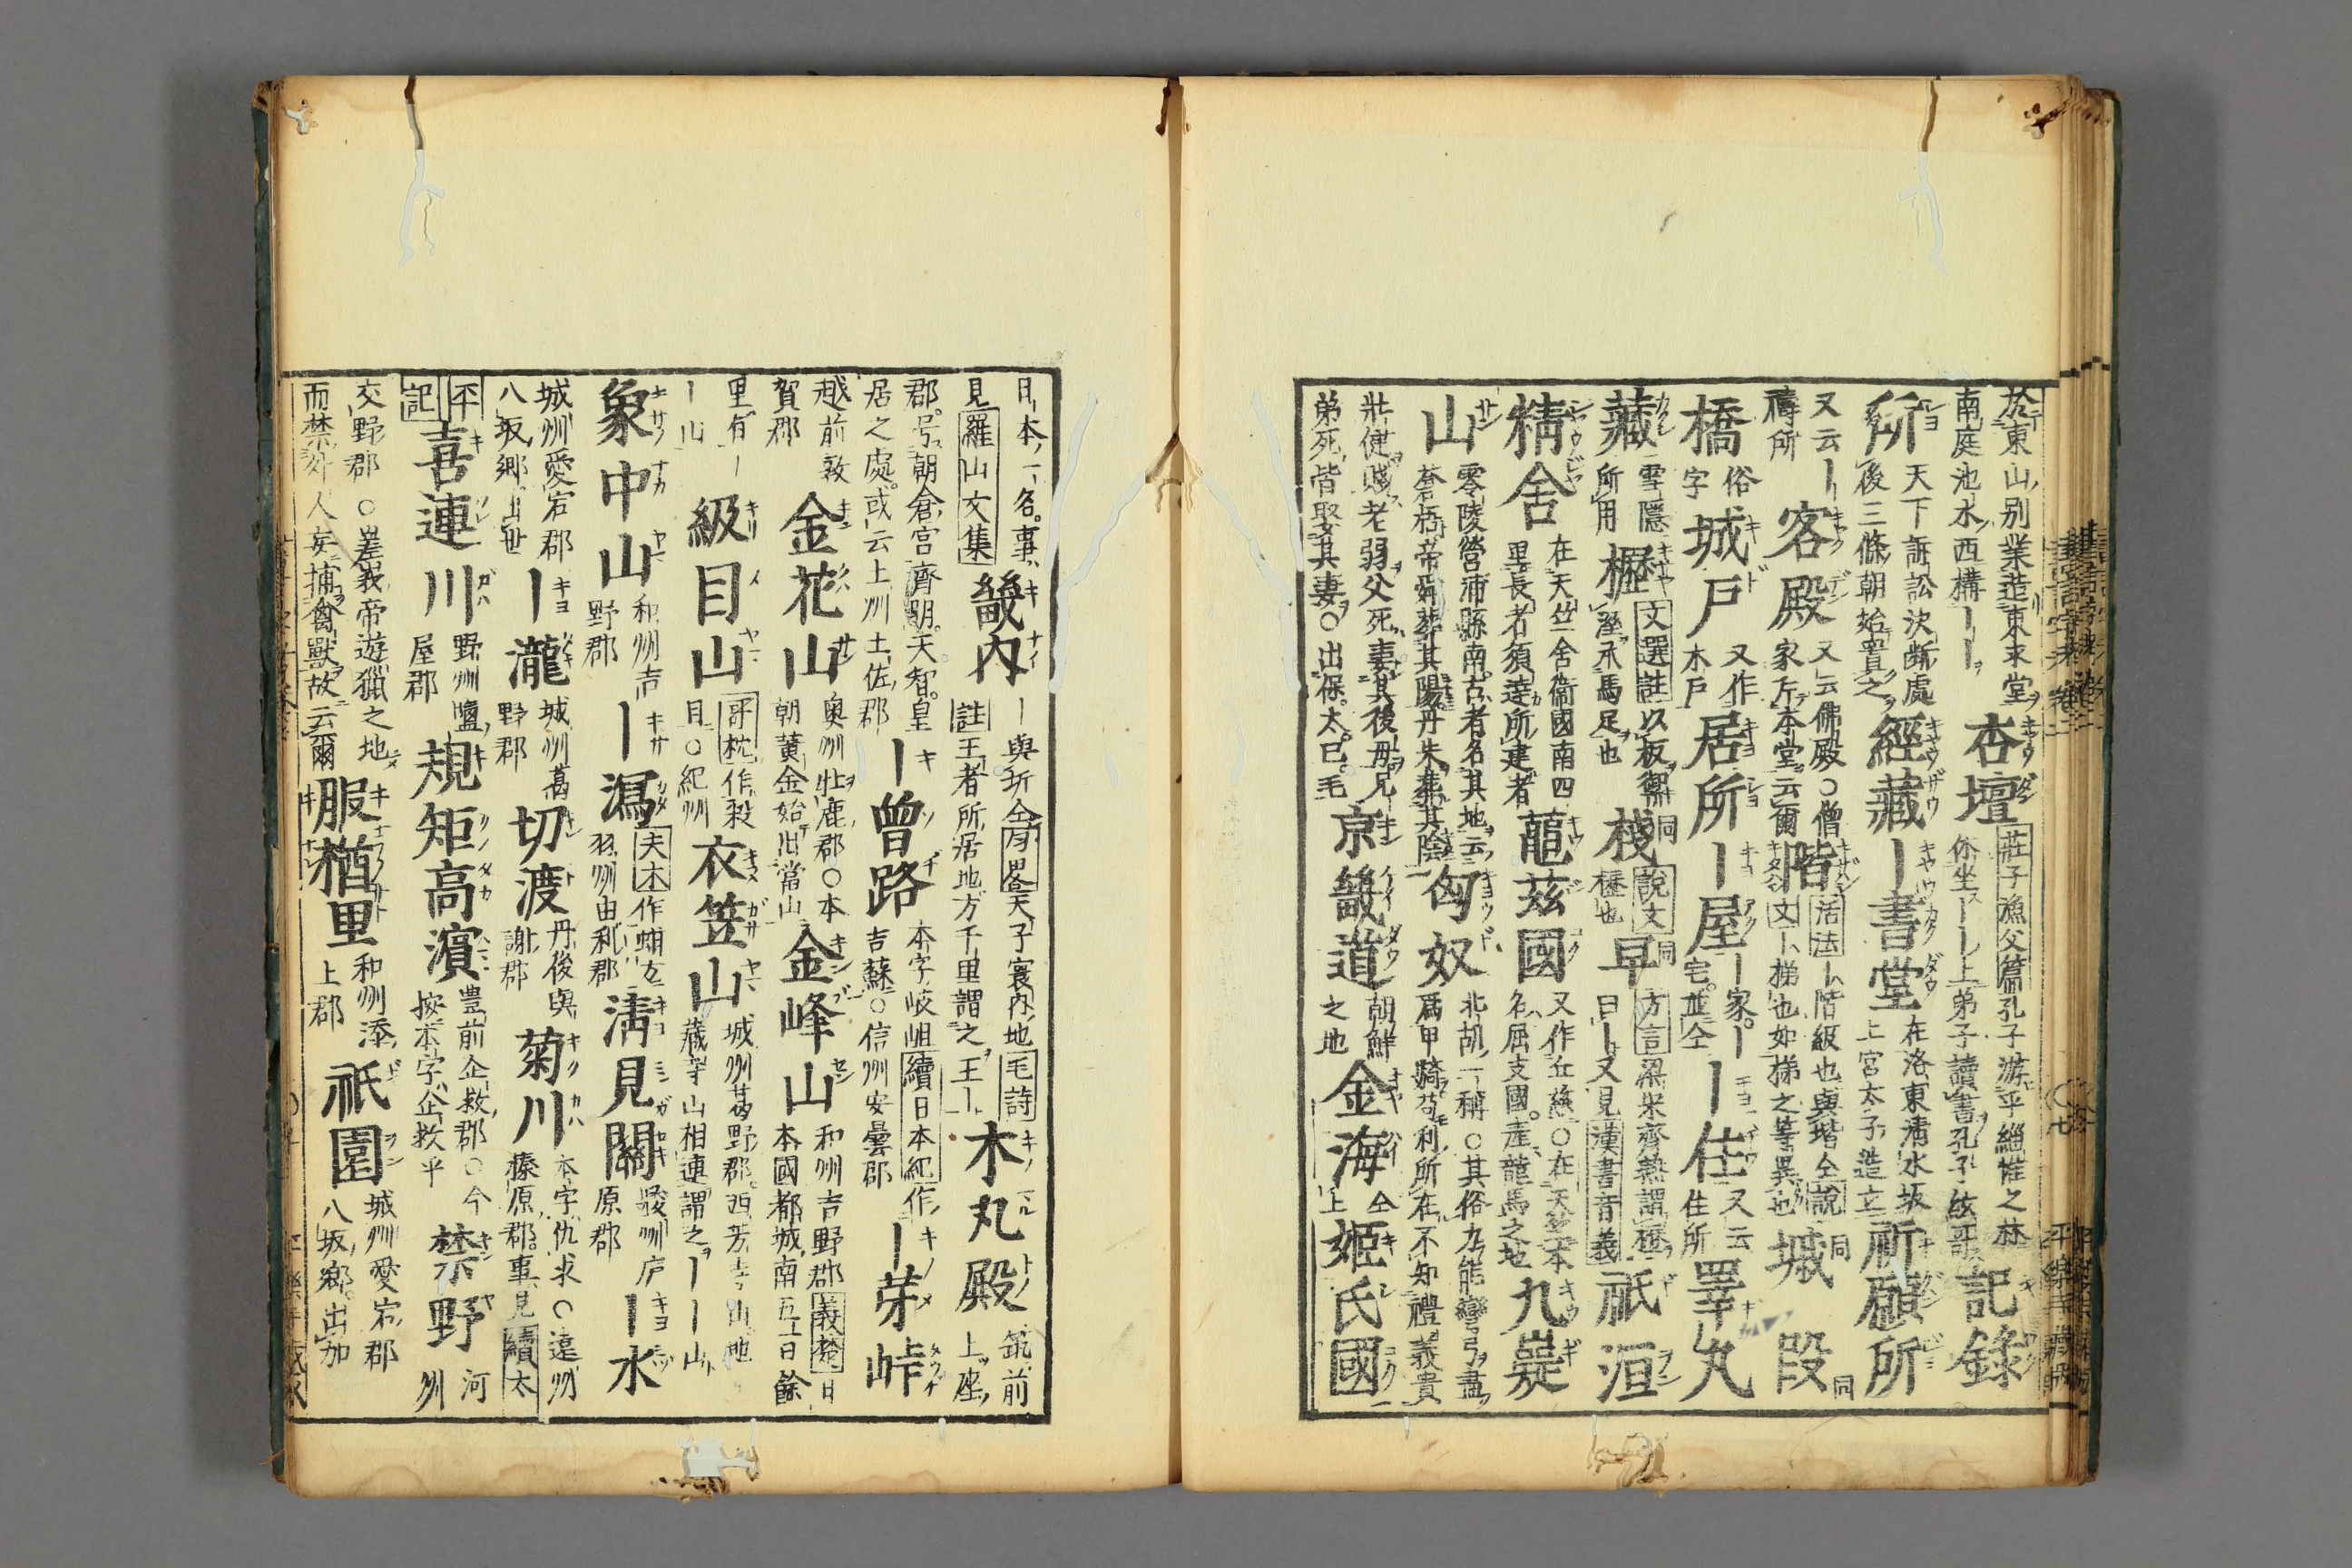 於東山別業造東求堂
南庭池水西構｜｜
杏壇
莊子漁父篇孔子游乎緇惟之林
休坐｜｜上弟子讀書孔子絃歌
記錄
所
天下訴訟決斷處
後三條朝始置之
經藏
｜書堂
在洛東清水坂
上宮太子造立
祈願所
又云｜
禱所
客殿
又云佛殿○僧
家斤本堂云爾
階
活法｜階級也與堦仝說
文｜梯也如梯之等異也
城同
段同
橋
俗
字
城戶
又作
木戶
居所
｜屋
｜家｜
宅並仝
｜住
又云
住所
睪丸
藏
雪隱
所用
櫪
文選註以板御
溼氶馬足也
棧同
說文
櫪也
早同
方言梁宋齊燕謂櫪
曰｜又見漢書音義
祇洹
精舍
在天竺舍衞國南四
里長者須達所建者
龜茲國
又作丘慈○在天竺本
名屈支國產龍馬之地
九嶷
山
零陵營浦縣南古者名其地云
蒼梧帝舜葬其陽丹朱葬其陰
匈奴
北胡一稱○其俗力能彎弓盡
爲甲騎苟利所在不知禮義貴
壯健賤老弱父死妻其後母兄
弟死皆娶其妻○出保太巳毛
京畿道
朝鮮
之地
金海
仝
上
姬氏國
日本一名事
見羅山文集
畿內
｜與圻仝周畧天子寰內地毛詩
註王者所居地方千里謂之王｜
木丸殿
筑前
上座
郡号朝倉宮齊明天智皇
居之處或云上州土佐郡
｜曾路
本字岐岨續日本紀作
吉蘇○信州安曇郡
｜芽峠
越前敦
賀郡
金花山
奥州牡鹿郡○本
朝黃金始出當山
金峰山
和州吉野郡義楚曰
本國都城南五百餘
里有｜
｜山
級目山
哥枕作殺
目○紀州
衣笠山
城州葛野郡西芳寺山地
藏寺山相連謂之｜｜山
象中山
和州吉
野郡
｜潟
夫木作蚶方
羽州由利郡
淸見關
駿州庐
原郡
｜水
城州愛宕郡
八坂鄉出世
｜瀧
城州葛
野郡
切渡
丹後與
謝郡
菊川
本字仇求○遠州
榛原郡事見續太
平
記
喜連川
野州鹽
屋郡
規矩高濱
豊前企救郡○今
按本字企救乎
禁野
河
州
交野郡○嵳峩帝遊獵之地
而禁外人妄捕禽獸故云爾
服楢里
和州添
上郡
祇園
城州愛宕郡
八坂鄉出加